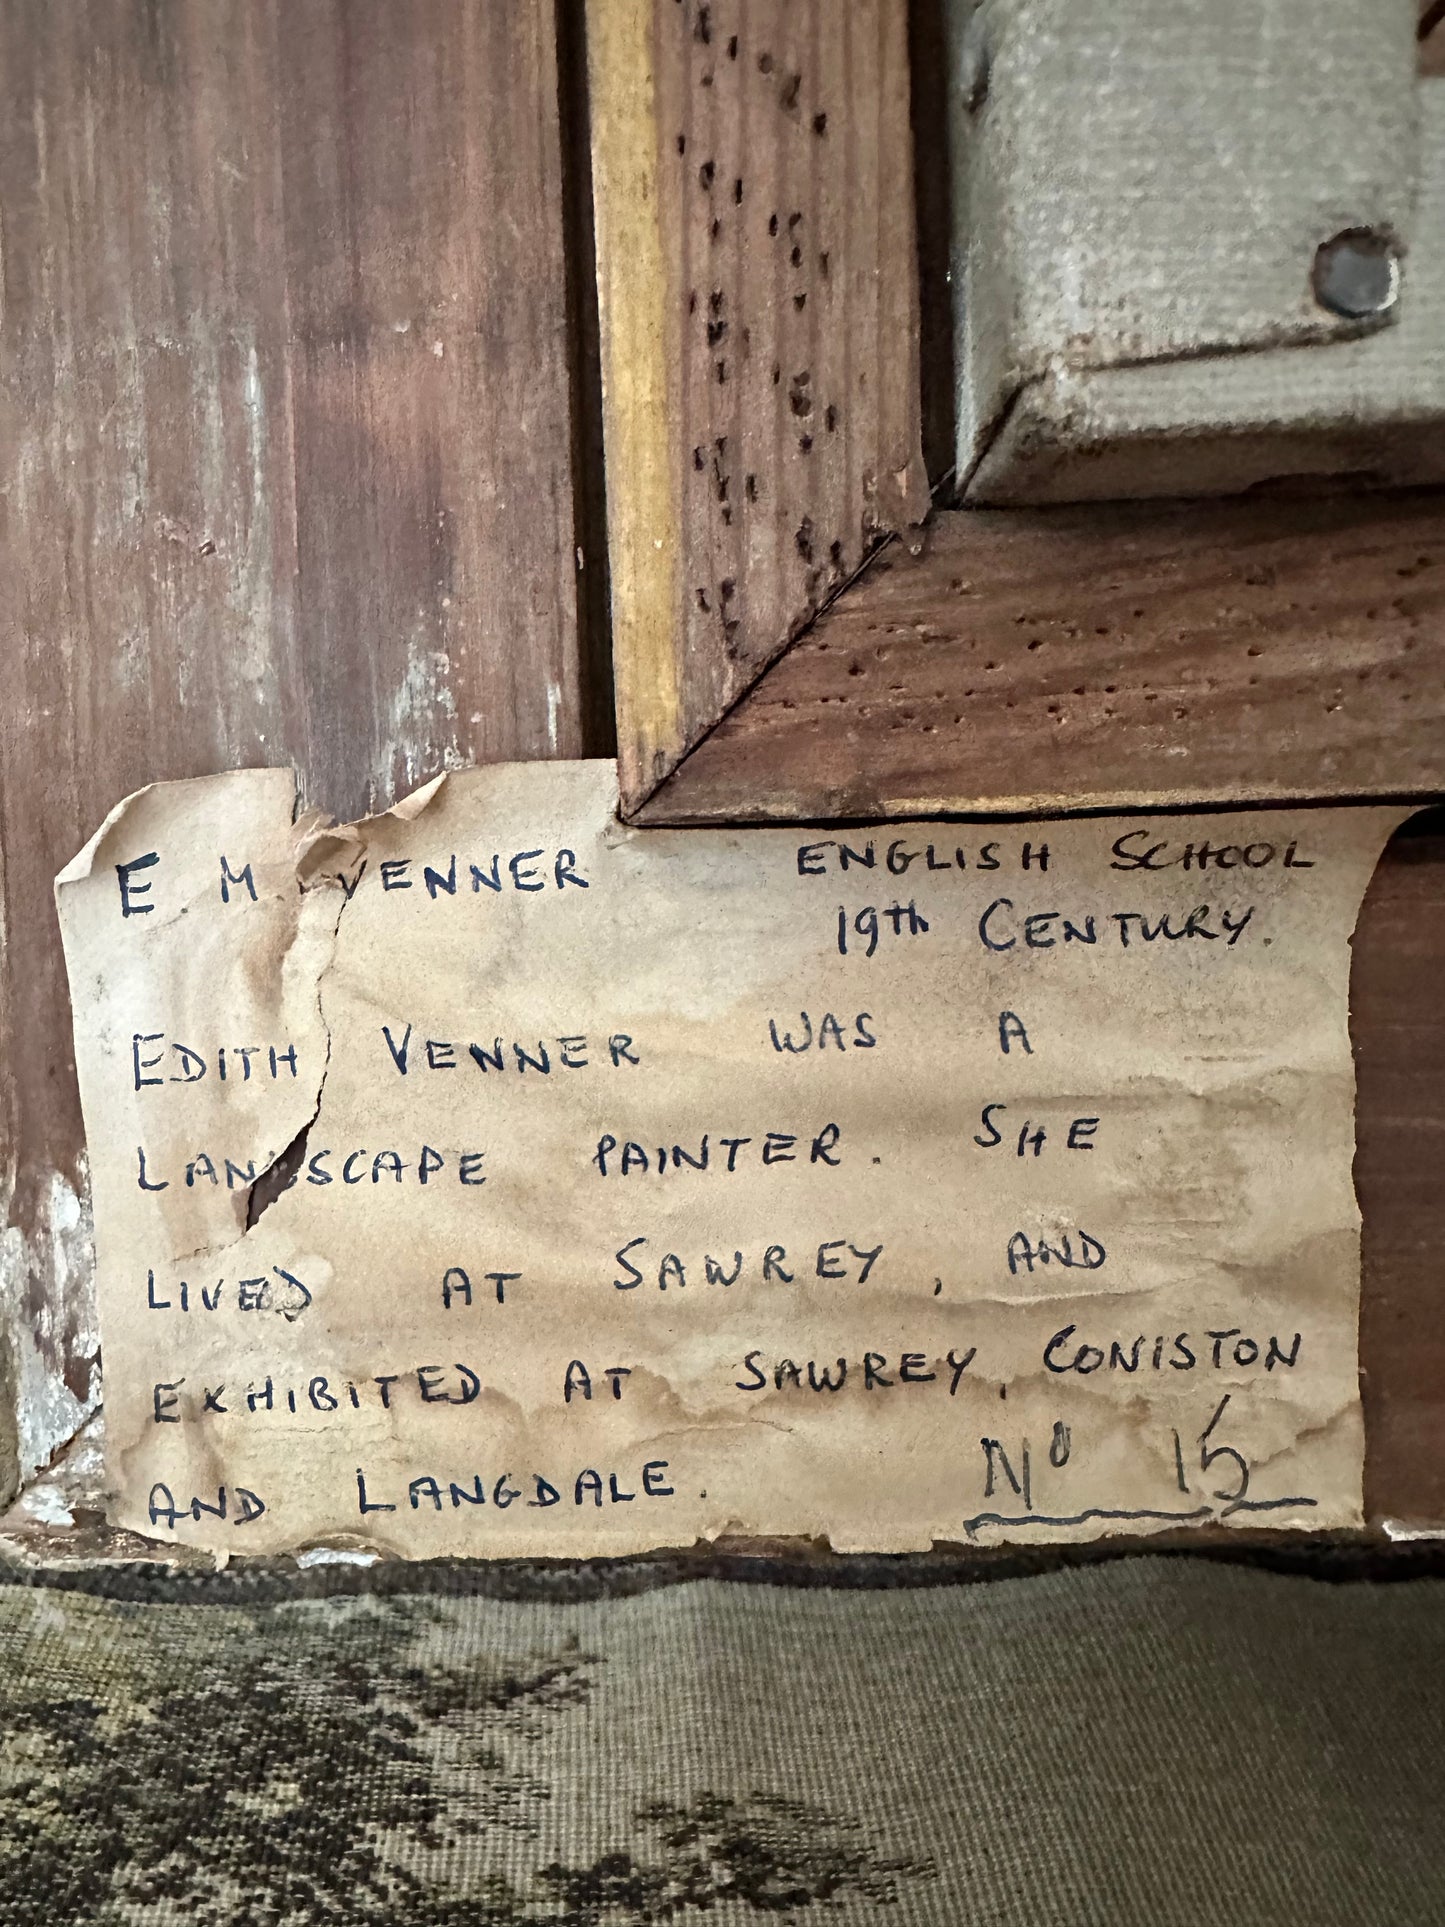 E. M. VENNER ENGLISH SCHOOL
19th CENTURY.
EDITH VENNER WAS A
LANDSCAPE PAINTER. SHE
LIVED AT SAWREY, AND
EXHIBITED AT SAWREY, CONISTON
AND LANGDALE.
Nº 15